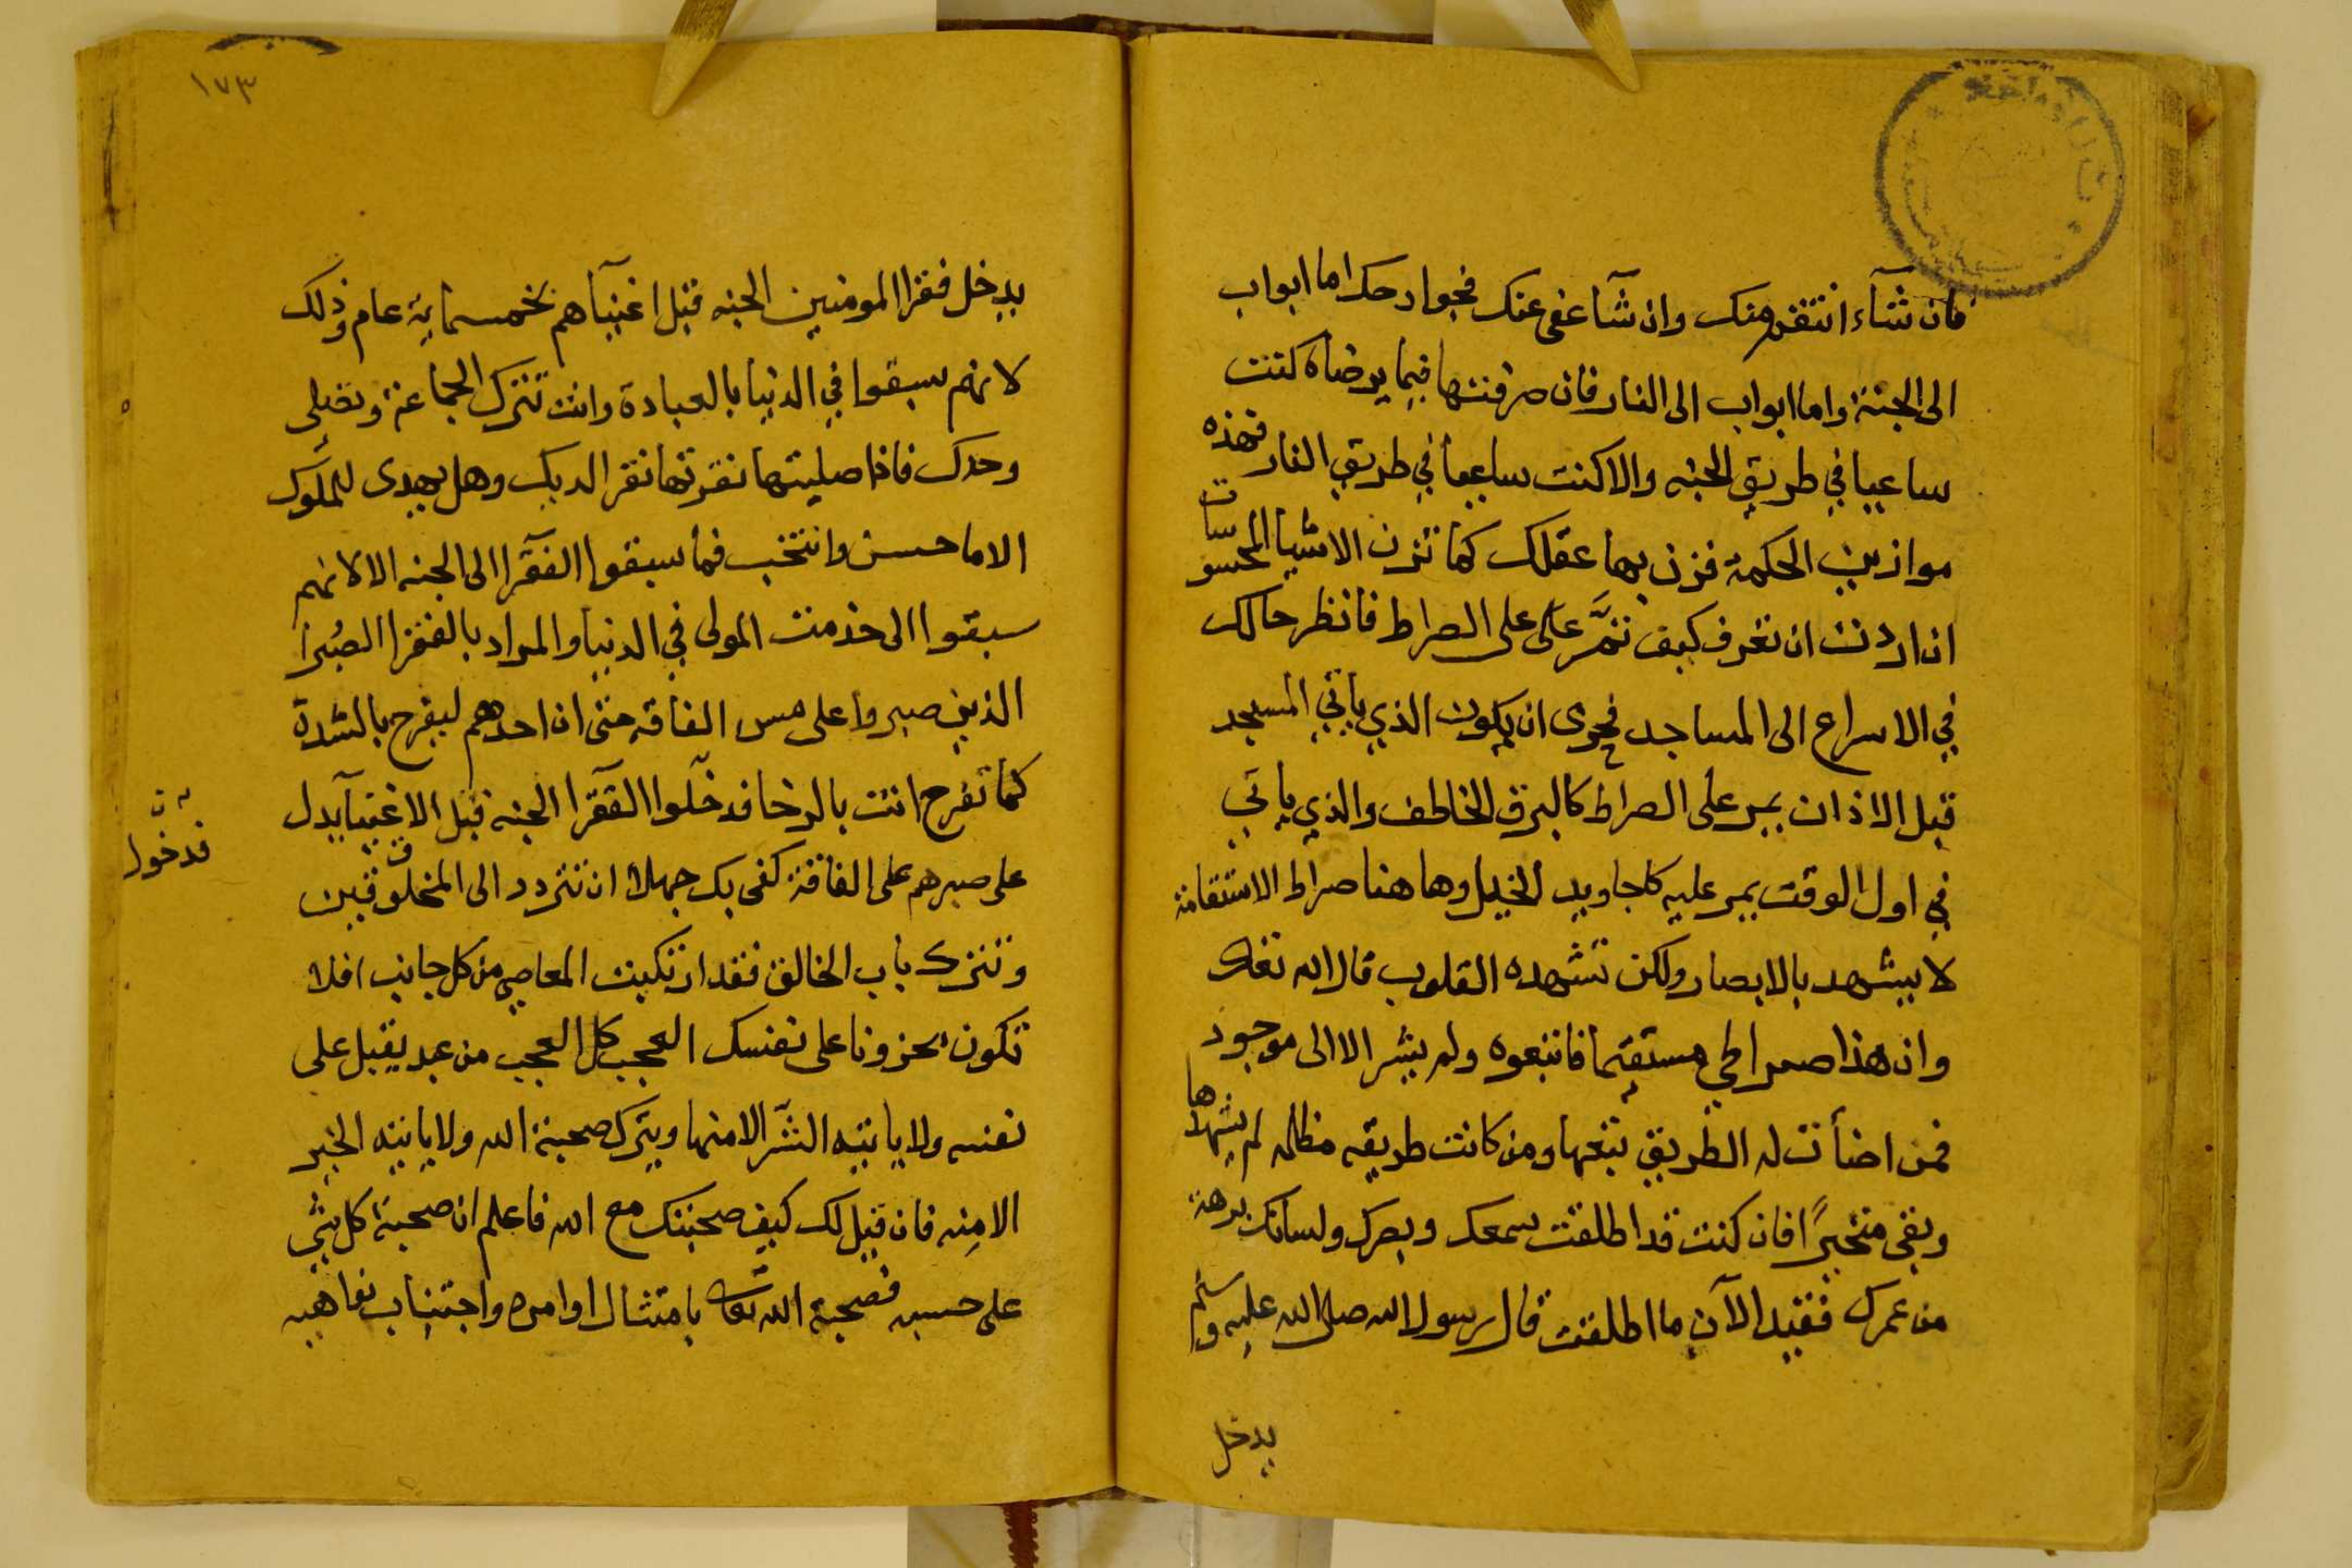 فان شآء انتقم منك وان شآ عفى عنك فجوارحك اما ابواب
الى الجنة واما ابواب الى النار فان صرفتها فيما يرضاه كنت
ساعيا في طريق الجنه والا كنت ساعيا في طريق النار فهذه
موازين الحكمة فزن بها عقلك كما تزن الاشيا المحسوسات
ان اردت ان تعرف كيف تمرّ على على الصراط فانظر حالك
في الاسراع الى المساجد فحرى ان يكون الذي ياتي المسجد
قبل الاذان يمر على الصراط كالبرق الخاطف والذي ياتي
في اول الوقت يمر عليه كاجاويد الخيل وهاهنا صراط الاستقامة
لا يشهد بالابصار ولكن تشهده القلوب قال الله تعالى
وان هذا صراطي مستقيما فاتبعوه ولم يشر الا الى موجود
فمن اضأت له الطريق تبعها ومن كانت طريقه مظلمه لم يشهدها
وبقى متحيرًا فان كنت قد اطلقت سمعك وبصرك ولسانك برهة
من عمرك فقيد الآن ما اطلقت قال رسول الله صلى الله عليه وسلم
يدخل
١٧٣
يدخل فقرا المومنين الجنه قبل اغنيآهم بخمسماية عام وذلك
لانهم سبقوا في الدنيا بالعبادة وانت تترك الجماعة وتصلى
وحدك فاذا صليتها نقرتها نقر الديك وهل يهدى للملوك
الا ما حسن وانتخب فما سبقوا الفقرا الى الجنه الا لانهم
سبقوا الى خدمت المولى في الدنيا والمراد بالفقرا الصُبرا
الذين صبروا على مس الفاقه حتى ان احدهم ليفرح بالشدة
كما تفرح انت بالرخا فدخلوا الفقرا الجنه قبل الاغنيآ يدل
فدخول
على صبرهم على الفاقة كفى بك جهلا ان تتردد الى المخلوقين
وتترك باب الخالق فقد ارتكبت المعاصي من كل جانب افلا
تكون محزونا على نفسك العجب كل العجب من عبد يقبل على
نفسه ولا ياتيه الشر الا منها ويترك صحبة الله ولا ياتيه الخير
الا منه فان قيل لك كيف صحبتك مع الله فاعلم ان صحبة كل شي
على حسبه فصحبة الله تعالى بامتثال اوامره واجتناب نواهيه